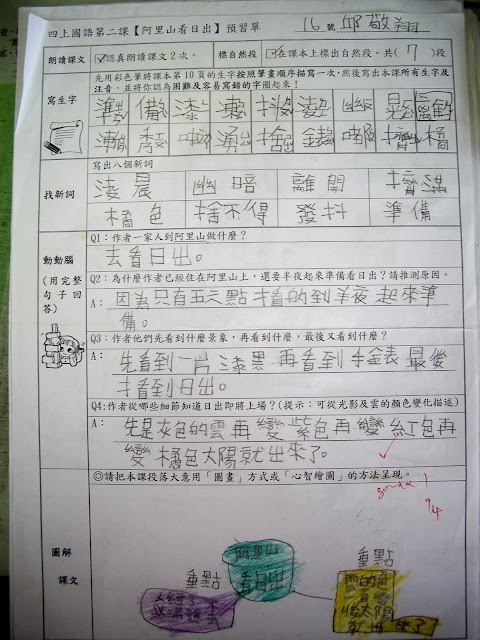 四上國語第二課【阿里山看日出】預習單 16號 邱敬翔
朗讀課文 ☑認真朗讀課文2次。 標自然段 □在課本上標出自然段。共(7)段
先用彩色筆將課本第10頁的生字按照筆畫順序描寫一次,然後寫出本課所有生字及
注音,並將你認為困難及容易寫錯的字圈起來!
寫生字
準 備 漆 凌 幽 影 離
漸 湧 捨 錶 擠 橘
寫出八個新詞
找新詞
凌晨 幽暗 離開 擠滿
橘色 捨不得 發抖 準備
Q1:作者一家人到阿里山做什麼?
去看日出。
動動腦
(用完整句子回答)
Q2:為什麼作者已經住在阿里山上,還要半夜起來準備看日出?請推測原因。
A:因為只有五六點才看的到半夜起來準
備。
Q3:作者他們先看到什麼景象,再看到什麼,最後又看到什麼?
A:先看到一片漆黑再看到手錶最後
才看到日出。
Q4:作者從哪些細節知道日出即將上場?(提示:可從光影及雲的顏色變化描述)
A:先是灰色的雲再變紫色再變紅色再
變橘色太陽就出來了。
◎請把本課段落大意用「圖畫」方式或「心智繪圖」的方法呈現。
94
圖解
課文
阿里山
看日出
重點
重點